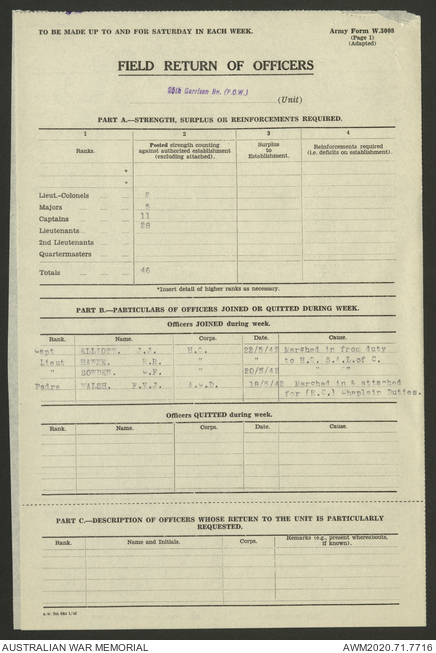 TO BE MADE UP TO AND FOR SATURDAY IN EACH WEEK.
Army Form W.3008
(Page 1)
(Adapted)
FIELD RETURN OF OFFICERS
25th Garrison Bn. (P.O.W.)
(Unit)
PART A.—STRENGTH, SURPLUS OR REINFORCEMENTS REQUIRED.
1 2 3 4
Ranks. Posted strength counting against authorized establishment (excluding attached). Surplus to Establishment. Reinforcements required (i.e. deficits on establishment).
*
*
Lieut.-Colonels 2
Majors 5
Captains 11
Lieutenants 28
2nd Lieutenants
Quartermasters
Totals 46
*Insert detail of higher ranks as necessary.
PART B.—PARTICULARS OF OFFICERS JOINED OR QUITTED DURING WEEK.
Officers JOINED during week.
Rank. Name. Corps. Date. Cause.
Capt ELLIOTT. J.J. 22/5/42 Marched in from duty
Lieut R.R. " " to H.Q. of C.
" BOWDEN. W.F. " 20/5/42 " "
Padre WALSH. 19/5/42 Marched in & attached
for (R.C.) Chaplain Duties.
Officers QUITTED during week.
Rank. Name. Corps. Date. Cause.
PART C.—DESCRIPTION OF OFFICERS WHOSE RETURN TO THE UNIT IS PARTICULARLY
REQUESTED.
Rank. Name and Initials. Corps. Remarks (e.g., present whereabouts, if known).
AUSTRALIAN WAR MEMORIAL
AWM2020.71.7716